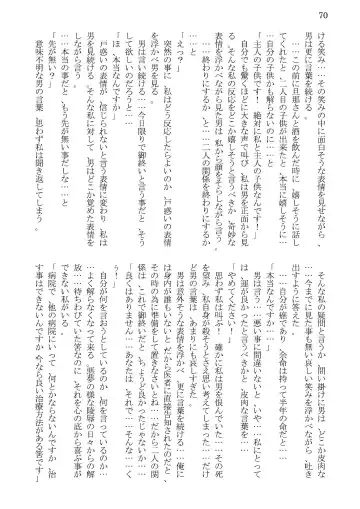 70
ける笑み…その笑みの中に面白そうな表情を見せながら、
男は更に言葉を続ける。
「この前に旦那さんと酒を飲んだ時に……嬉しそうに話し
てくれたと…二人目の子供が出来たと…本当に嬉しそうに
……自分の子供かも解らないのに…と…
「主人の子供です！　絶対に私と主人の子供なんです！」
自分でも驚くほどに大きな声で叫び、男を正面から見
る。そんな私の反応をどこか嬉しそうと言うべきか、奇妙な
表情を浮かべながら見た男は、私から顔をそらしながら言う。
「……終わりにするか、と……二人の関係を終わりにすると
「えっ？」
突然の事に、私はどう反応したらよいのか、戸惑いの表情
を浮かべ男を見る。
男は言い続ける……今日限りで御終いと言う事だと、そう
して欲しいのだろう……と
「ほ、本当なんですか」
戸惑いの表情が、信じられないと言う表情に変わり、私は
男を見続ける。そんな私に対して、男はどこか覚めた表情を
しながら言う。
「……本当の事だと、もう先が無い事だしな……と
「先が無い？」
意味不明な男の言葉、思わず私は聞き返してしまう。
そんな私の疑問と言うか、問い掛けに男は、どこか皮肉な
……今までに見た事も無い哀しい笑みを浮かべながら、吐き
出すように答えた
……自分が癌であり、余命は持って半年の命だと……
「本当なんですか……」
男は言う……悪い事に間違いないと、いや……私にとって
は、運が良かったと言うべきかと、皮肉な言葉を……
「やめてください！」
思わず私は叫ぶ！　確かに私は男を恨んでいた……
を望み、私自身が殺そうとさえ思い考えてしまった…
ど男の言葉は、あまりにも哀しすぎた
男は意外そうな表情を浮かべ、更に言葉を続ける…俺に
は身内も誰もいない、だから医者に直接告知されたのだと、
その時の為に準備をして置きなさいと……だから二人の関
係は、これで御終いだと、ちょうど良かったじゃないかと
「良くはありません……あなたは、それで……そんな……く
う！」
自分が何を言おうとしているのか、何を言っているのか…
…よく解らなくなって来る。悪夢の様な陵辱の日々からの解
放…待ちわびていた筈なのに、それを心の底から喜ぶ事が
できない私がいる。
「病院で、他の病院にいって、何とかならないんですか、治
す事はできないんですか、今なら良い治療方法がある筈です」